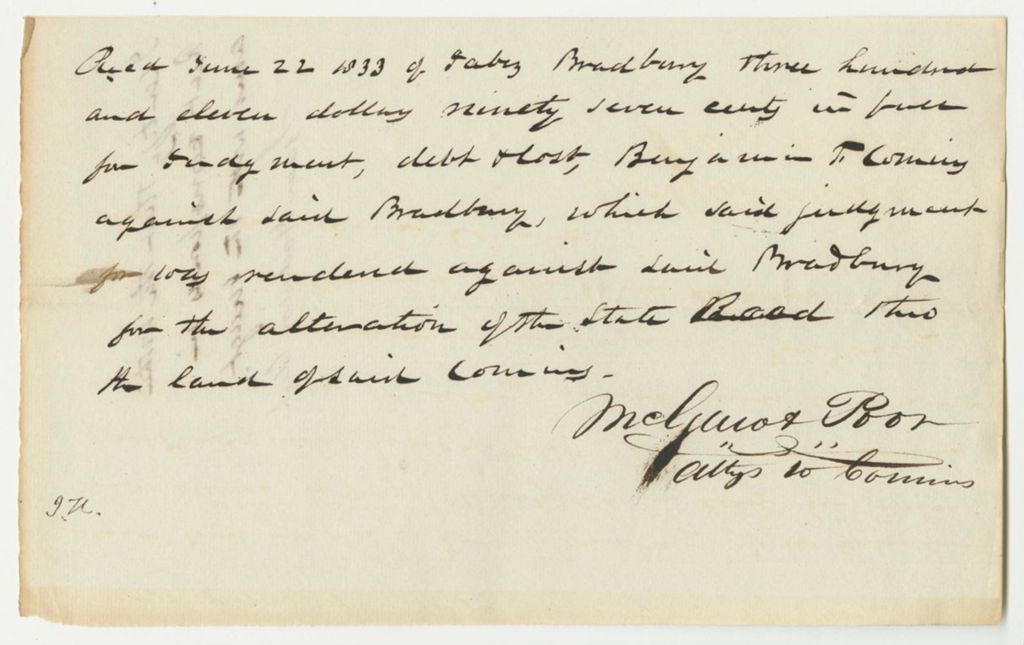 Recd June 22 1833 of Jabez Bradbury three hundred
and eleven dollars ninety seven cents in full
for Judgment, debt & Cost, Benjamin T. Comins
against said Bradbury, which said judgment
was rendered against said Bradbury
for the alteration of the State Road thro
the land of said Comins.
Poor
Attys to Comins